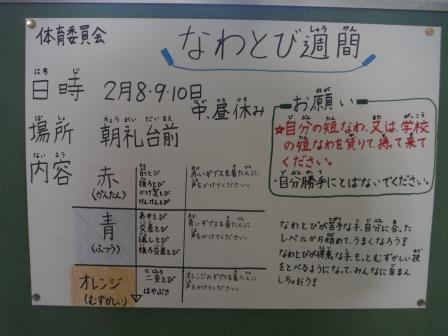 体育委員会
なわとび週間
日時 2月8・9・10日
中、昼休み
場所 朝礼台前
内容
お願い
★自分の短なわ、又は、学校
の短なわを借りて、持って来て
ください。
・自分勝手にとばないでください。
赤
(かんたん)
前とび
後ろとび
かけ足とび
けんけんとび
赤いビブスを着た人に、
声をかけてください。
青
(ふつう)
あやとび
交差とび
後ろ交差とび
青いビブスを着た人に、
声をかけてください。
オレンジ
(むずかしい)
二重とび
はやぶさ
オレンジのビブスを着た人に
声をかけてください。
なわとびが苦手な子、自分に合った
レベルから始めて、うまくなろう!
なわとびが得意な子、もっとむずかしい技
をとべるようになって、みんなに自まん
しちゃおう!